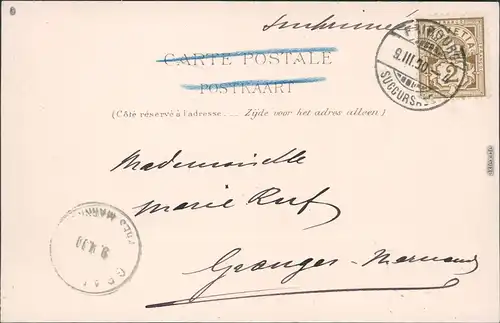 Imprimé
CARTE POSTALE
POSTKAART
(Côté réservé à l'adresse. ... Zijde voor het adres alleen)
FRIBOURG
9.III.00
SUCCURS
HELVETIA
2
Mademoiselle
Marie Ruf
Granges-Marnand
PRÈS MARN